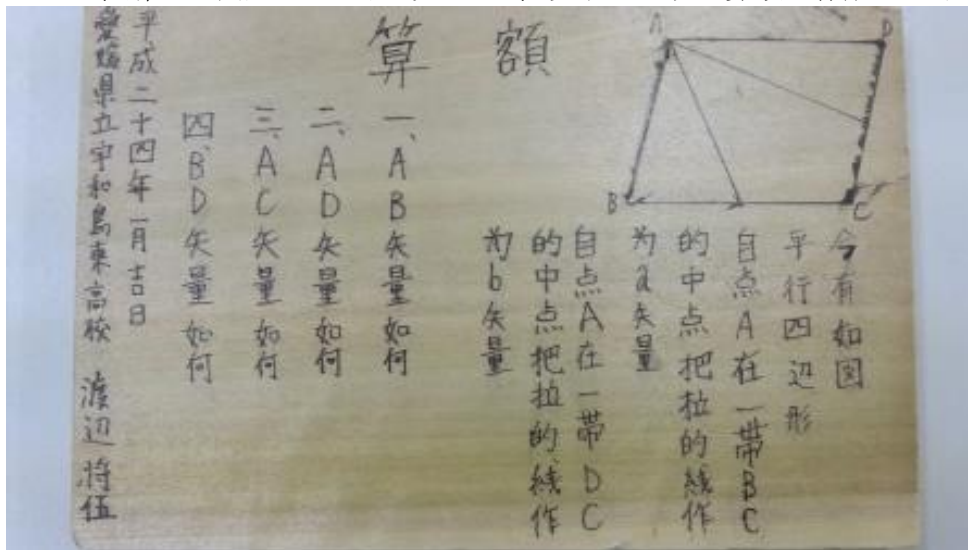 算額
A
D
B
C
今有如図
平行四辺形
自点A在一帯BC
的中点把拉的線作
为a矢量
自点A在一帯DC
的中点把拉的線作
为b矢量
一、AB矢量如何
二、AD矢量如何
三、AC矢量如何
四、BD矢量如何
平成二十四年一月吉日
愛媛県立宇和島東高校 渡辺将伍